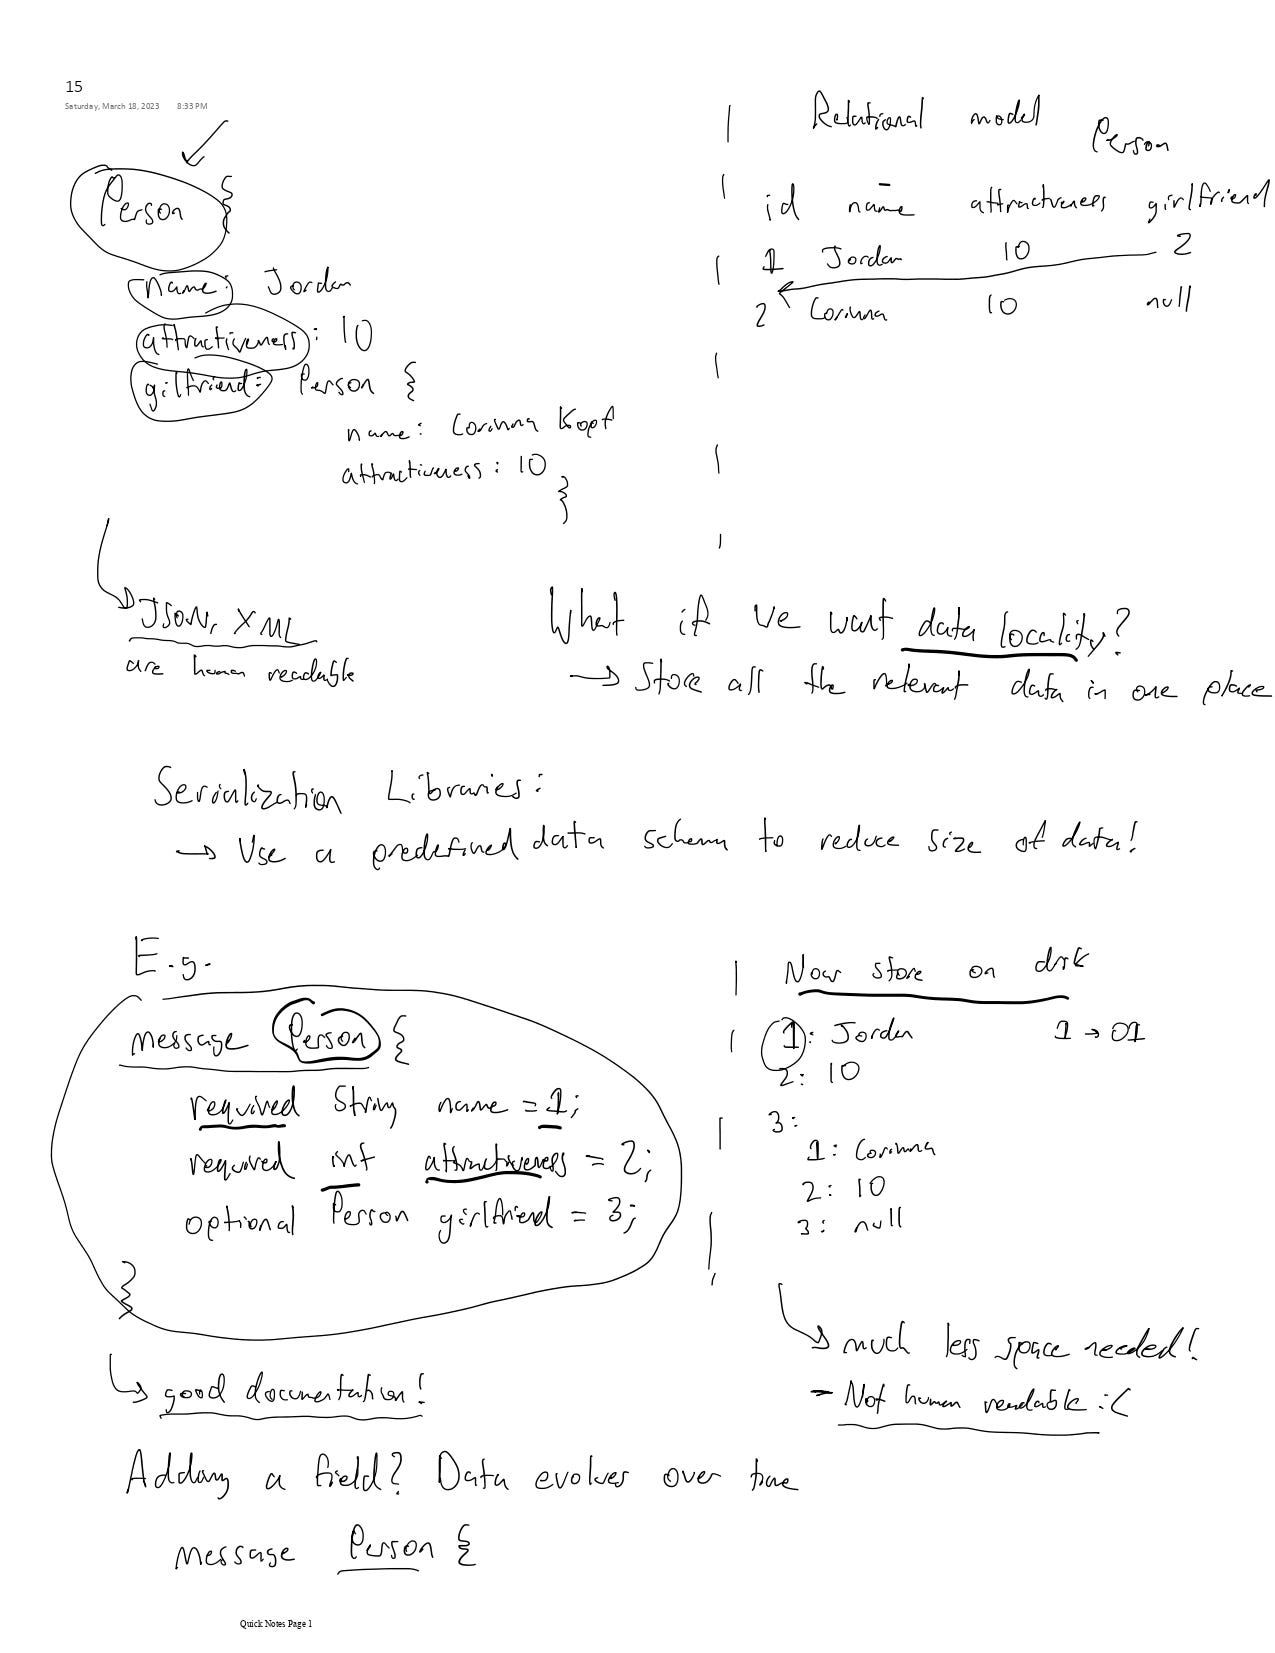 15
Saturday, March 18, 2023 8:33 PM
Person {
name: Jordan
attractiveness: 10
gilfriend: Person {
name: Corinna Kopf
attractiveness: 10
}
Relational model
Person
id name attractiveness girlfriend
1 Jordan 10 2
2 Corinna 10 null
JSON, XML
are human readable
What if we want data locality?
→ Store all the relevant data in one place
Serialization Libraries:
→ Use a predefined data schema to reduce size of data!
E.g.
message Person {
required String name = 1;
required int attractiveness = 2;
optional Person girlfriend = 3;
}
good documentation!
Now store on disk
1: Jordan 1 → 01
2: 10
3:
1: Corinna
2: 10
3: null
much less space needed!
- Not human readable :(
Adding a field? Data evolves over time
message Person {
Quick Notes Page 1